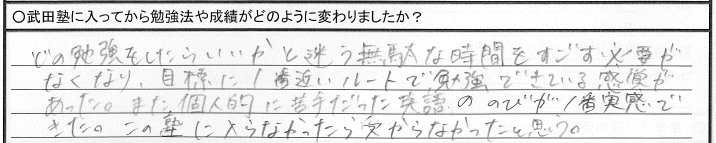 ○武田塾に入ってから勉強法や成績がどのように変わりましたか？
どの勉強をしたらいいかと迷う無駄な時間をすごす必要が
なくなり、目標に1番近いルートで勉強できている感覚が
あった。また個人的に苦手だった英語ののびが1番実感で
きた。この塾に入らなかったら受からなかったと思う。